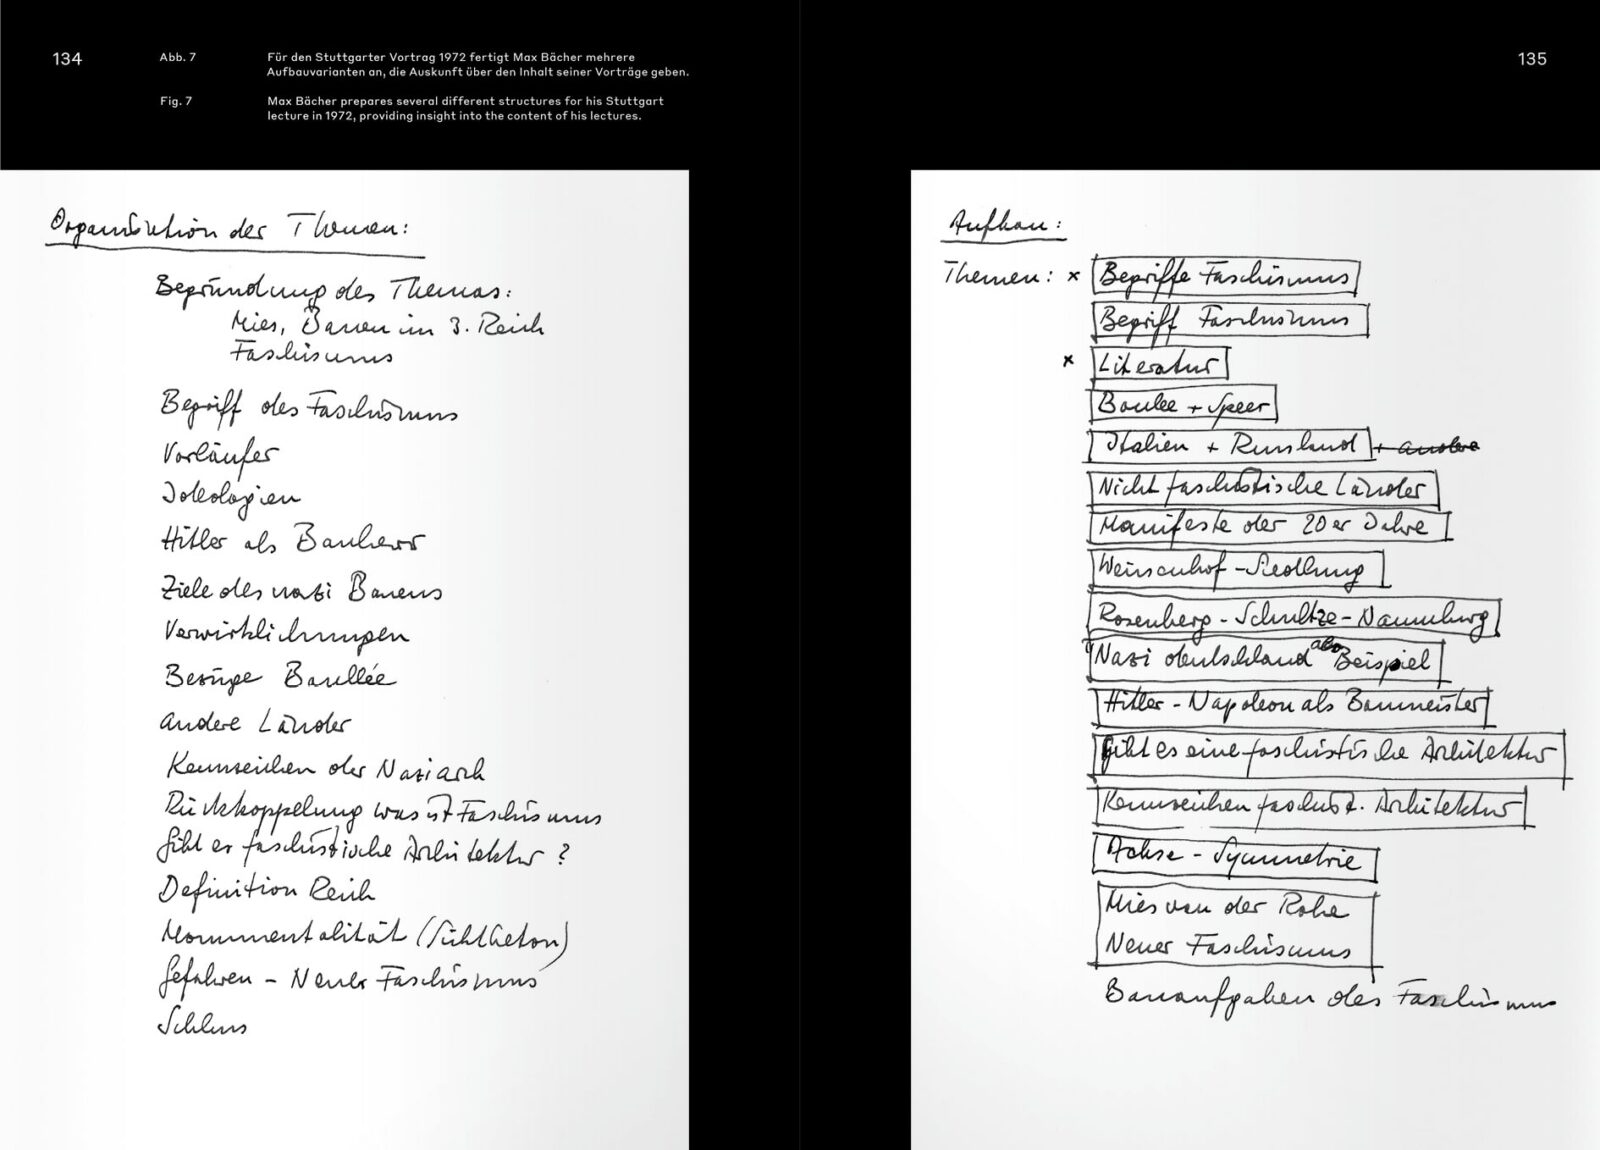 134
Abb. 7
Für den Stuttgarter Vortrag 1972 fertigt Max Bächer mehrere
Aufbauvarianten an, die Auskunft über den Inhalt seiner Vorträge geben.
Fig. 7
Max Bächer prepares several different structures for his Stuttgart
lecture in 1972, providing insight into the content of his lectures.
Organisation der Themen:
Begründung des Themas:
Mies, Bauen im 3. Reich
Faschismus
Begriff des Faschismus
Vorläufer
Ideologien
Hitler als Bauherr
Ziele des nazi Bauens
Verwirklichungen
Bezüge Boullée
andere Länder
Kennzeichen der Naziarch
Rückkoppelung was ist Faschismus
Gibt es faschistische Architektur ?
Definition Reich
Monumentalität (Sichtbeton)
Gefahren - Neuer Faschismus
Schluss
135
Aufbau:
Themen: x Begriffe Faschismus
Begriff Faschismus
x Literatur
Boulee + Speer
Italien + Russland + andere
Nicht faschistische Länder
Manifeste der 20er Jahre
Weissenhof-Siedlung
Rosenberg - Schultze-Naumburg
Nazi deutschland als Beispiel
Hitler - Napoleon als Baumeister
Gibt es eine faschistische Architektur
Kennzeichen faschist. Architektur
Achse - Symmetrie
Mies van der Rohe
Neuer Faschismus
Bauaufgaben des Faschismus